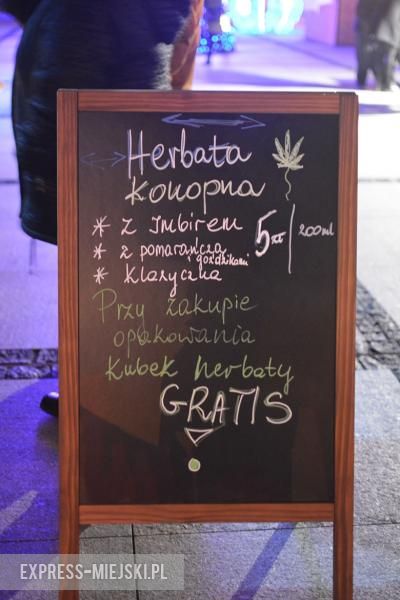 Herbata
Konopna
* Z Imbirem
* z pomarańczą
i goździkami
* Klasyczna
5zł/200ml
Przy zakupie
opakowania
Kubek herbaty
GRATIS
EXPRESS-MIEJSKI.PL